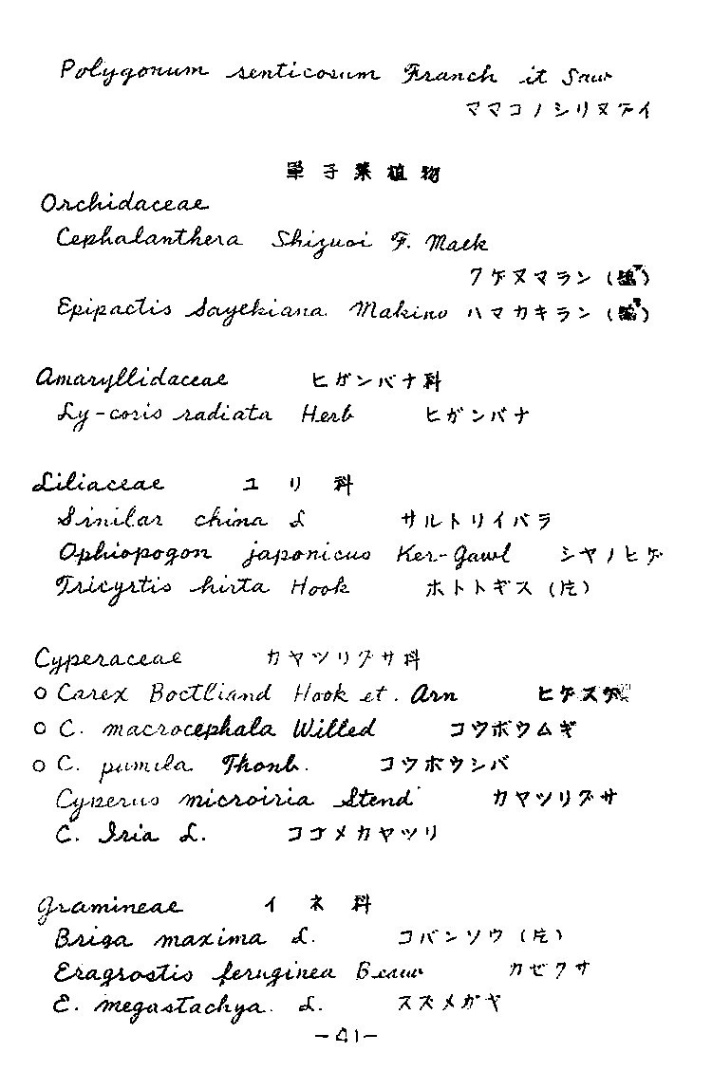 Polygonum senticosum Franch it Sauv
ママコノシリヌテイ
単子葉植物
Orchidaceae
Cephalanthera Shizuoi F. Maek
クゲヌマラン
Epipactis Sayekiana Makino ハマカキラン
Amaryllidaceae ヒガンバナ科
Ly-coris radiata Herb ヒガンバナ
Liliaceae ユリ科
Sinilar china L サルトリイバラ
Ophiopogon japonicus Ker-Gawl ジヤノヒゲ
Tricyrtis hirta Hook ホトトギス (片)
Cyperaceae カヤツリグサ科
○ Carex Boctliand Hook et. Arn ヒゲスゲ
○ C. macrocephala Willed コウボウムギ
○ C. pumila Thonb. コウホウシバ
Cyperus microiria Stend カヤツリグサ
C. Iria L. コゴメカヤツリ
Gramineae イネ科
Briga maxima L. コバンソウ (片)
Eragrostis feruginea Beauv カゼクサ
E. megastachya. L. スズメガヤ
-41-